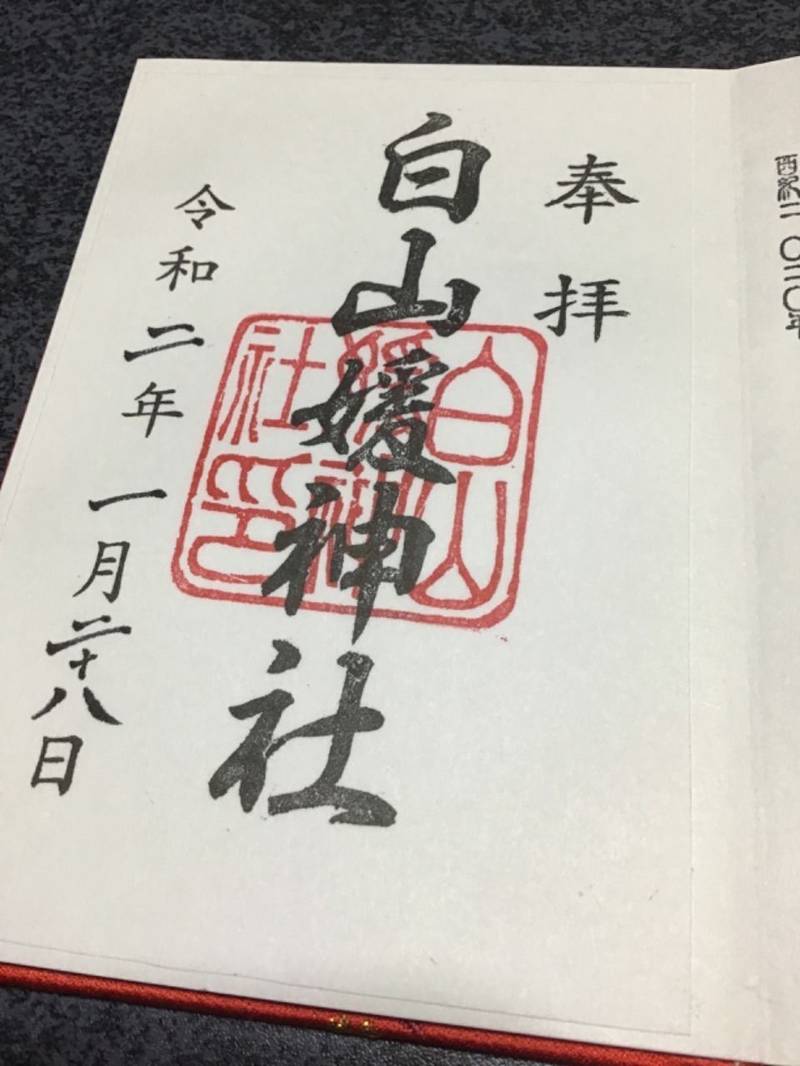 西紀二〇二〇年
奉拝
白山媛神社
白山媛神社印
令和二年一月二十八日